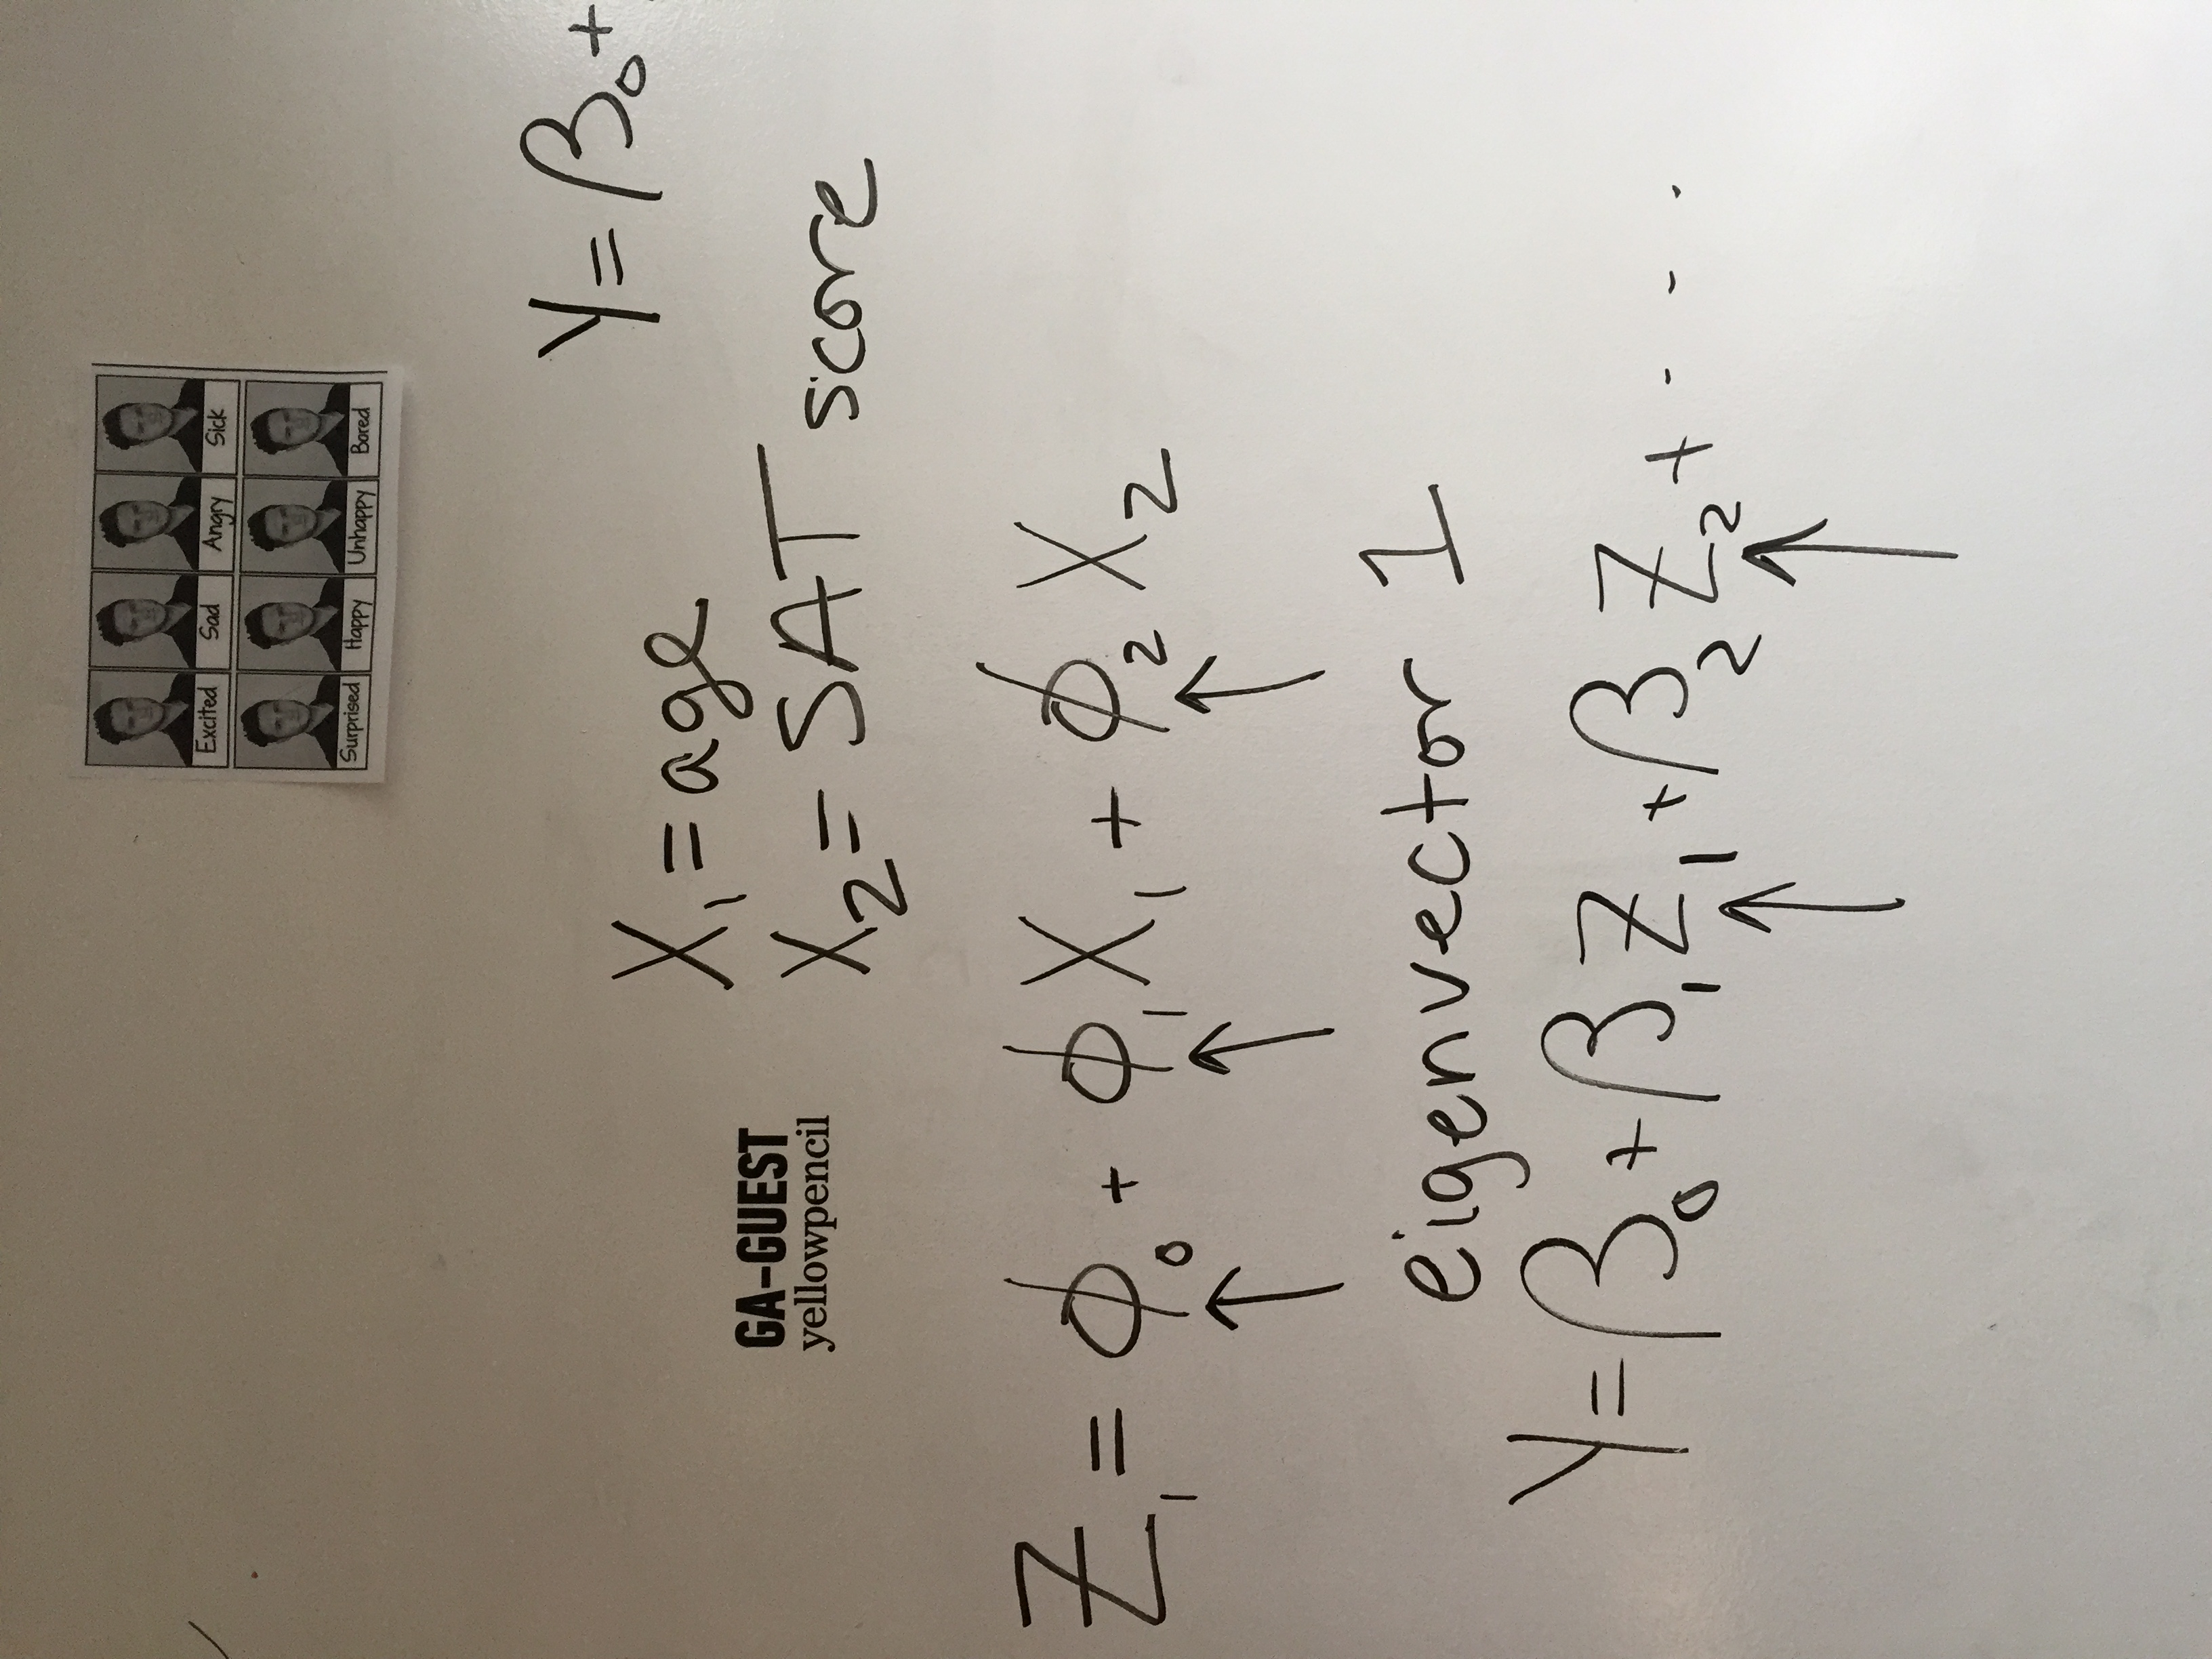 Excited Sad Angry Sick
Surprised Happy Unhappy Bored
Y = β₀ +
X₁ = age
GA-GUEST
yellowpencil
X₂ = SAT score
Z₁ = ϕ₀ + ϕ₁X₁ + ϕ₂X₂
eigenvector 1
Y = β₀ + β₁Z₁ + β₂Z₂ + ...